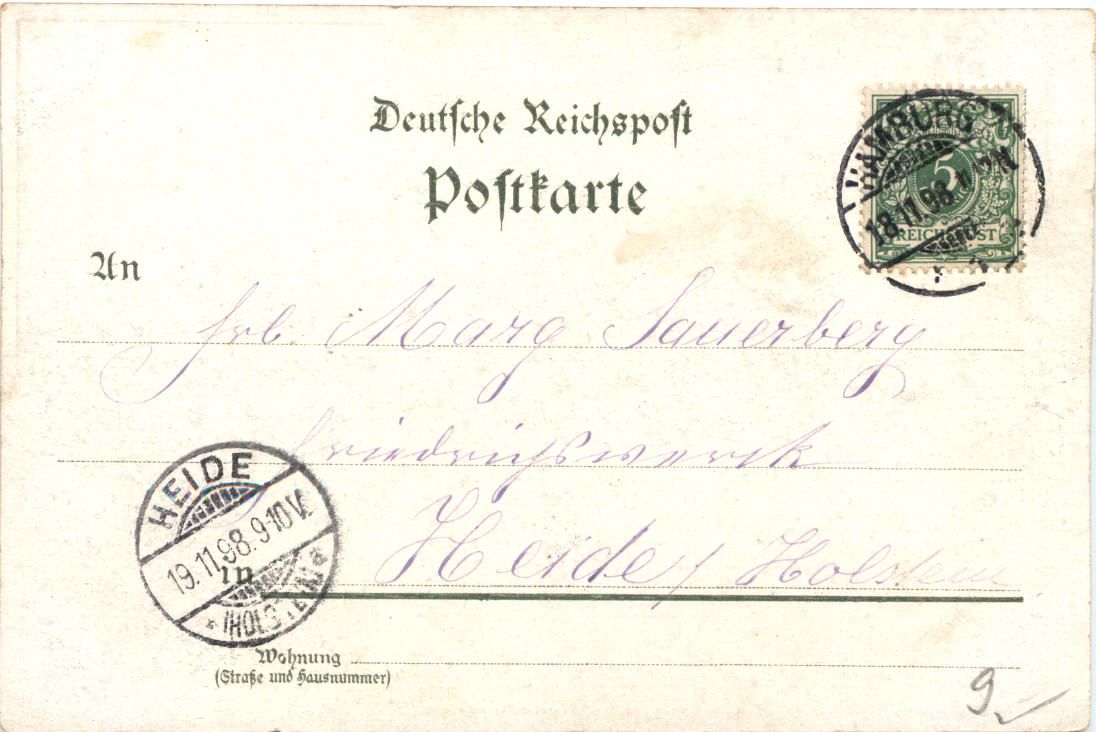 Deutsche Reichspost
Postkarte
HAMBURG
18.11.98.
5
REICHSPOST
An
Marg Sauerberg
Friedrichswerk
Heide / Holstein
HEIDE
19.11.98. 9-10V.
(HOLSTEIN)
in
Wohnung
(Straße und Hausnummer)
9